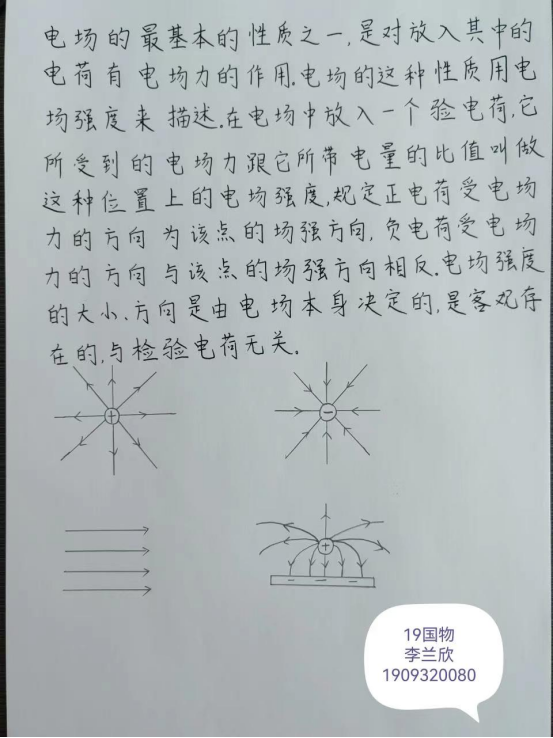 电场的最基本的性质之一,是对放入其中的
电荷有电场力的作用.电场的这种性质用电
场强度来描述.在电场中放入一个验电荷,它
所受到的电场力跟它所带电量的比值叫做
这种位置上的电场强度,规定正电荷受电场
力的方向为该点的场强方向,负电荷受电场
力的方向与该点的场强方向相反.电场强度
的大小、方向是由电场本身决定的,是客观存
在的,与检验电荷无关.
+
−
+
− − −
19国物
李兰欣
1909320080